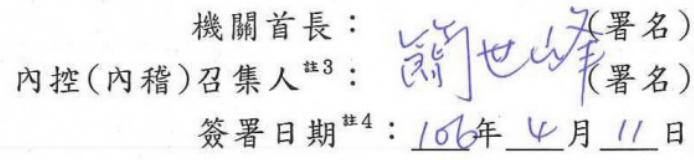 機關首長：簡世峰(署名)
內控(內稽)召集人註3：(署名)
簽署日期註4：106年4月11日